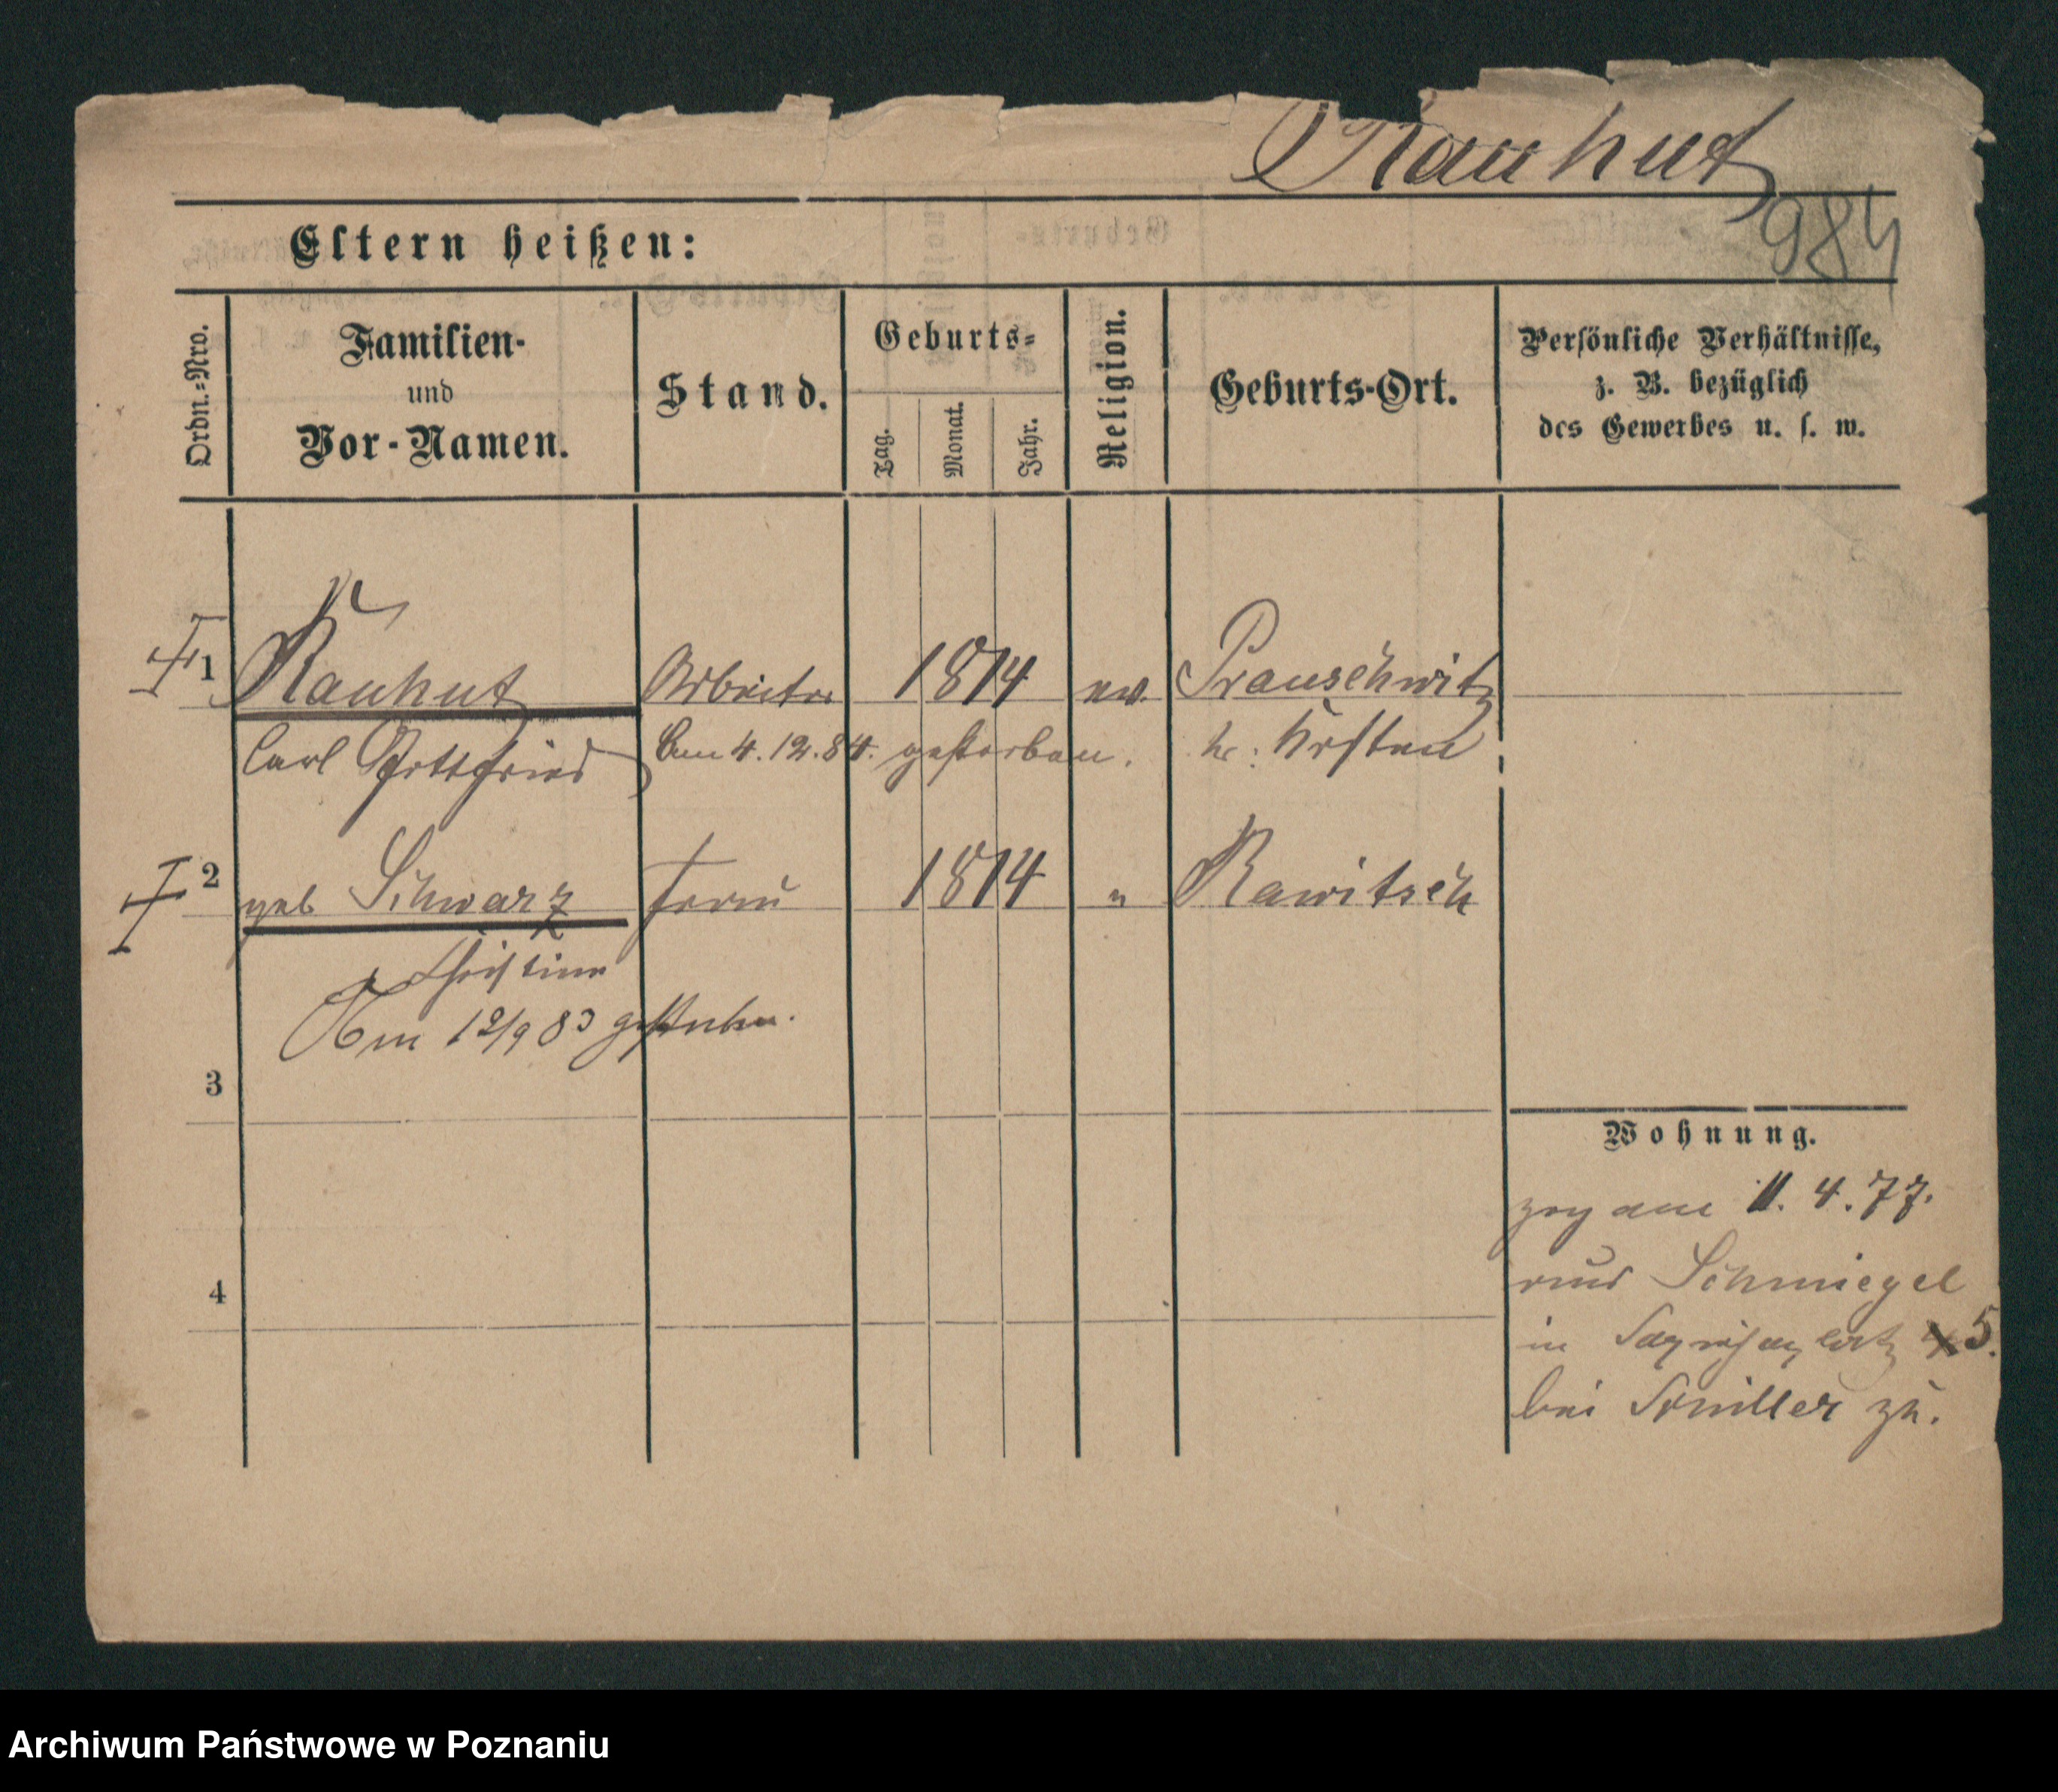 Rauhut
984
Eltern heißen:
Ordn.=Nro.
Familien-
und
Vor-Namen.
Stand.
Geburts=
Tag.
Monat.
Jahr.
Religion.
Geburts-Ort.
Persönliche Verhältnisse,
z. B. bezüglich
des Gewerbes u. s. w.
1 Rauhut Arbeiter 1814 ev. Prauschwitz
Carl Gottfried Am 4.12.84. gestorben. Kr: Kosten
2 geb Schwarz Frau 1814 " Rawitsch
Christine
Am 12/9 83 gestorben.
3
Wohnung.
zog am 11. 4. 77.
aus Schmiegel
4
in 5.
bei zu.
Archiwum Państwowe w Poznaniu